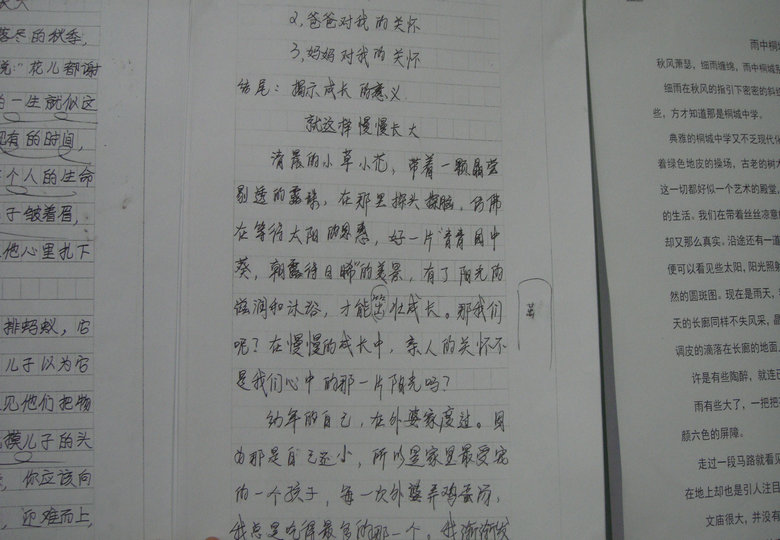 落尽的秋季，
说：“花儿都谢
一生就似这
有的时间，
个人的生命
子皱着眉，
他心里扎下
排蚂蚁，它
儿子以为它
见他们把物
摸儿子的头
，你应该向
迎难而上，
2、爸爸对我的关怀
3、妈妈对我的关怀
结尾：揭示成长的意义
就这样慢慢长大
清晨的小草小花，带着一颗晶莹
剔透的露珠，在那里探头探脑，仿佛
在等待太阳的恩惠，好一片“青青园中
葵，朝露待日晞”的美景，有了阳光的
滋润和沐浴，才能茁壮成长。那我们
呢？在慢慢的成长中，亲人的关怀不
是我们心中的那一片阳光吗？
幼年的自己，在外婆家度过。因
为那是自己还小，所以是家里最受宠
的一个孩子，每一次外婆弄鸡蛋汤，
我总是吃得最多的那一个。我渐渐发
茁
雨中桐
秋风萧瑟，细雨缠绵，雨中桐城
细雨在秋风的指引下密密的斜
些，方才知道那是桐城中学。
典雅的桐城中学又不乏现代
着绿色地皮的操场，古老的树
这一切都好似一个艺术的殿堂，
的生活。我们在带着丝丝凉意
却又那么真实。沿途还有一道
便可以看见些太阳，阳光照射
然的圆斑图。现在是雨天，
天的长廊同样不失风采，
调皮的滴落在长廊的地面，
许是有些陶醉，就连
雨有些大了，一把把
颜六色的屏障。
走过一段马路就看见
在地上却也是引人注目
文庙很大，并没有